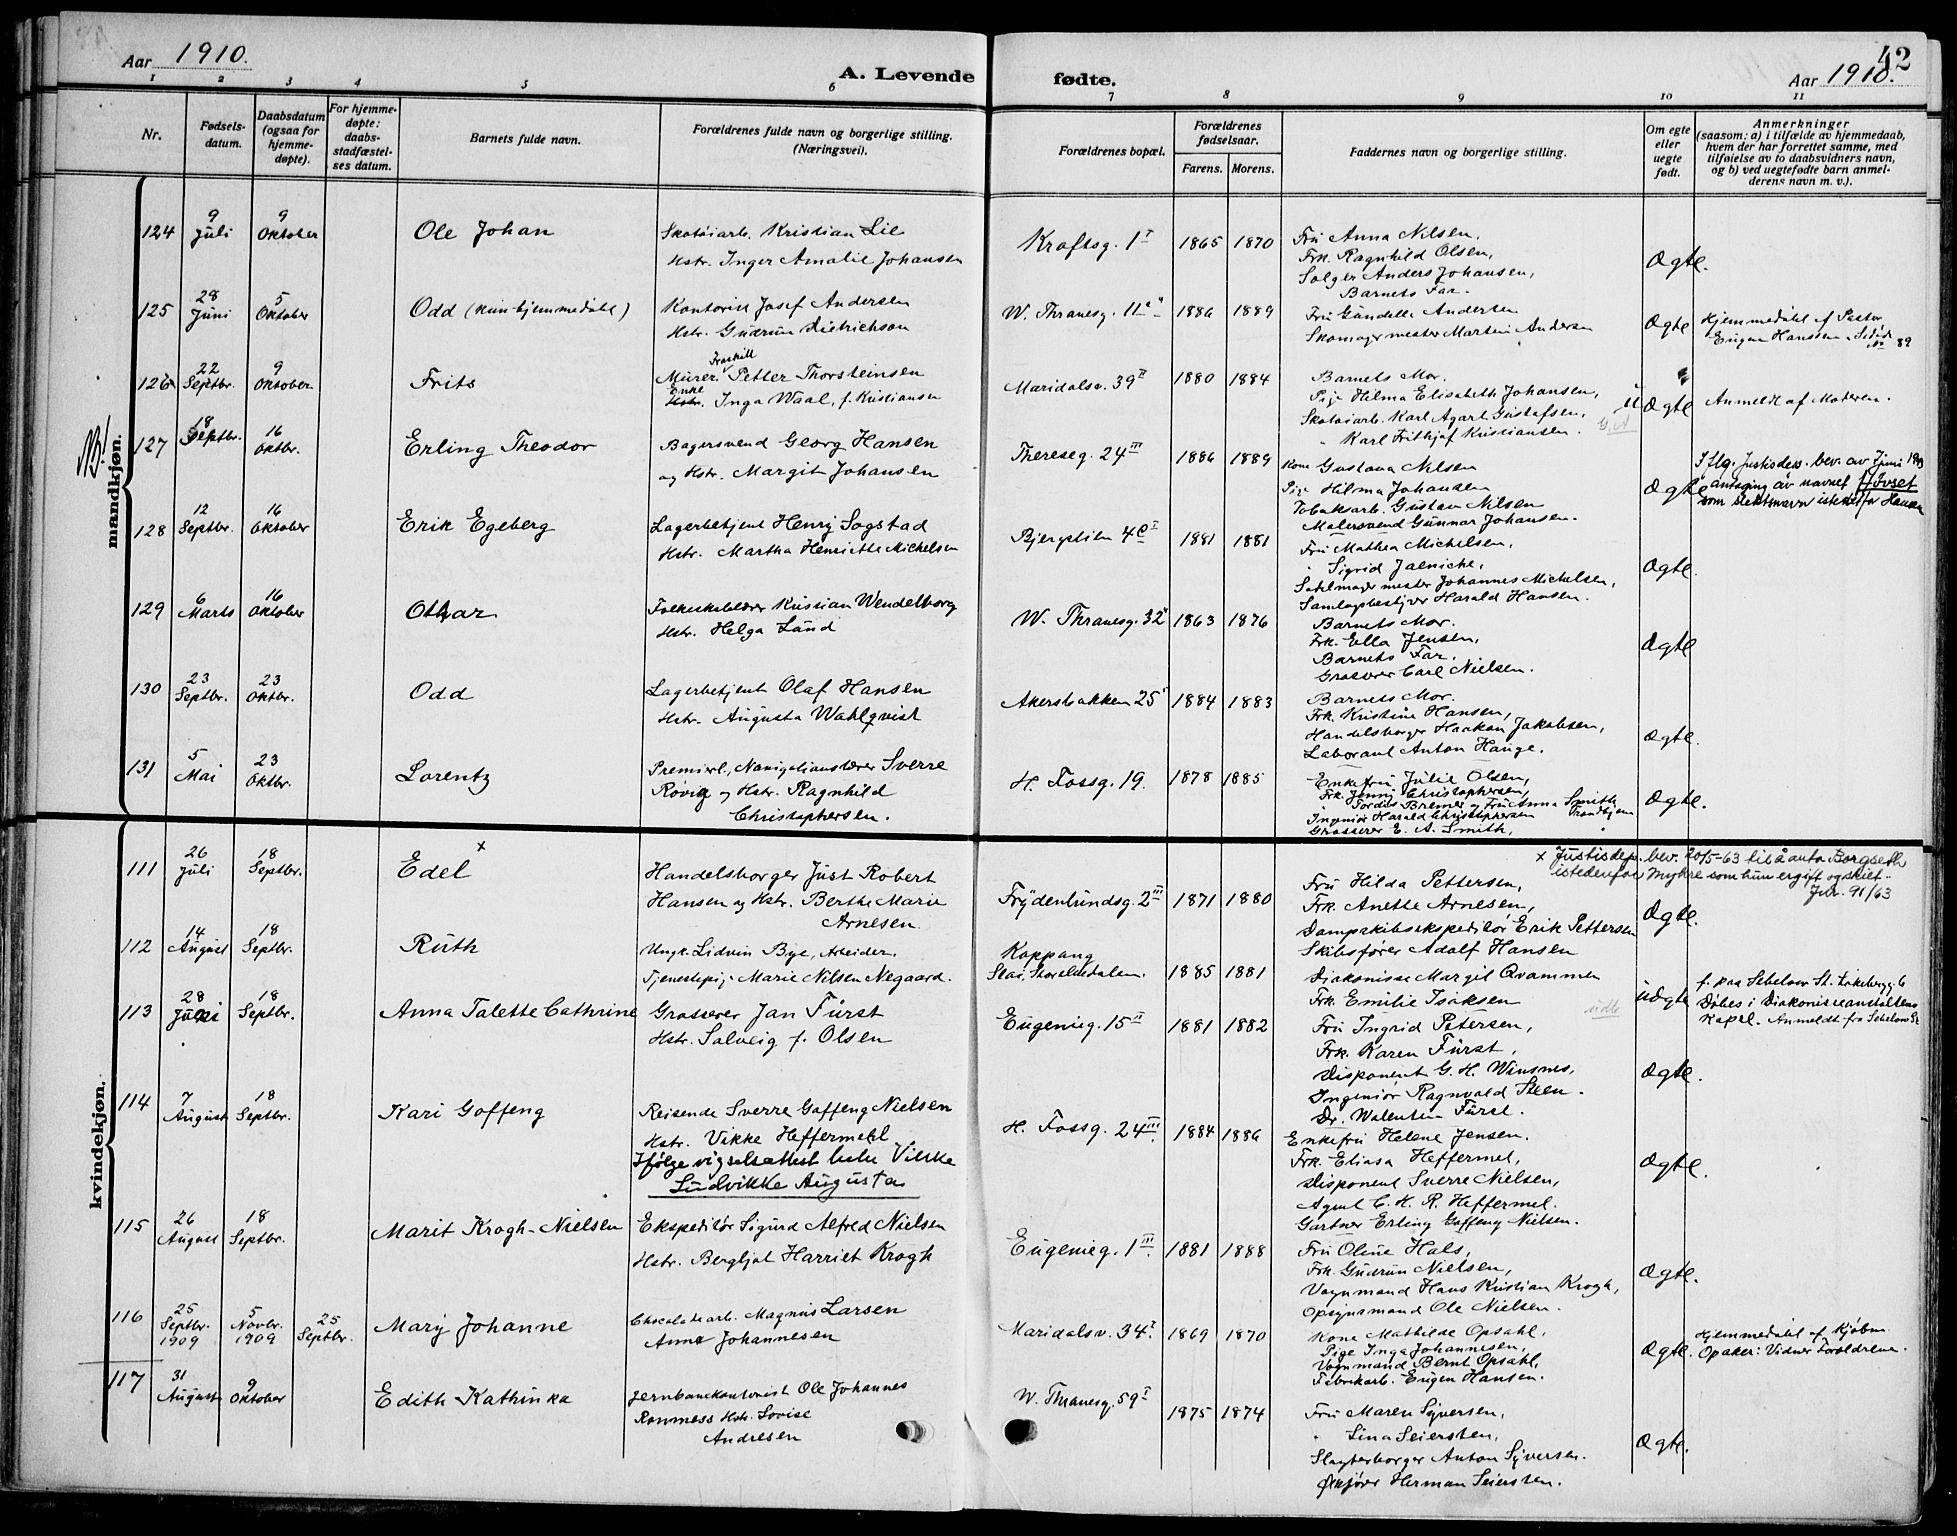 Aar 1910.
A. Levende fødte.
Aar 1910.
42
1 2 3 4 5 6 7 8 9 10 11
Nr.
Fødsels-
datum.
Daabsdatum
(ogsaa for
hjemme-
døpte).
For hjemme-
døpte:
daabs-
stadfæstel-
ses datum.
Barnets fulde navn.
Forældrenes fulde navn og borgerlige stilling.
(Næringsvei).
Forældrenes bopæl.
Forældrenes
fødselsaar.
Farens. Morens.
Faddernes navn og borgerlige stilling.
Om egte
eller
uegte
født.
Anmerkninger
(saasom: a) i tilfælde av hjemmedaab,
hvem der har forrettet samme, med
tilføielse av to daabsvidners navn,
og b) ved uegtefødte barn anmel-
derens navn m. v.).
mandkjøn.
NB!
124
9 Juli
9 Oktober
Ole Johan
Skotøiarb. Kristian Lie
Hstr. Inger Amalie Johansen
Kroftsg. 1 I
1865 1870
Fru Anna Nilsen,
Frk. Ragnhild Olsen,
Sølger Anders Johansen,
Barnets Far.
Ægte.
125
28 Juni
5 Oktober
Odd (kun hjemmedøbt)
Kontorist Josef Andersen
Hstr. Gudrun Dietrichson
W. Thranesg. 11
1886 1889
Fru Gunelle Andersen
Skomagermester Martin Andersen
Ægte
Hjemmedøbt af Pastor
Eugen Hanssen
№ 89
126
22 Septbr.
9 Oktober
Frits
Fraskilt
Murer Petter Thorsteinsen
Enke
Hstr. Inga Waal, f. Kristiansen
Maridalsv. 39 II
1880 1884
Barnets Mor.
Pige Hilma Elisabeth Johansen,
Skotøiarb. Karl Agart Gustafsen,
" Karl Frithjof Kristiansen.
G.A
u Ægte
Anmeldt af Moderen.
127
18 Septbr.
16 Oktbr.
Erling Theodor
Bagersvend Georg Hansen
og Hstr. Margit Johansen
Thereseg. 24 III
1886 1889
Kone Gustava Nilsen
Pige Hilma Johansen
Tobaksarb. Gustav Nilsen
Malersvend Gunnar Johansen.
Ægte
Iflg. Justisdep. bev. av juni
antaging av navnet
som slektsnavn istedetfor Hansen
128
12 Septbr.
16 Oktober
Erik Egeberg
Lagerbetjent Henry Sogstad
Hstr. Martha Henriette Michelsen
Bjergstien 4c I
1881 1881
Fru Mathea Michelsen,
" Sigrid Jaeniche,
Sadelmagermester Johannes Michelsen,
Samlagsbestyrer Harald Hansen.
Ægte.
129
6 Marts
16 Oktober
Othar
Folkeskolelærer Kristian Wendelborg
Hstr. Helga Lund
W. Thranesg. 32
1863 1876
Barnets Mor.
Frk. Ella Jensen,
Barnets Far,
Grosserer Carl Nielsen.
Ægte
130
23 Septbr.
23 Oktbr.
Odd
Lagerbetjent Olaf Hansen
Hstr. Augusta Wahlqvist
Akersbakken 25
1884 1883
Barnets Mor.
Frk. Kristine Hansen,
Handelsborger Haakon Jakobsen,
Laborant Anton Hauge.
Ægte.
131
5 Mai
23 Oktbr.
Lorentz
Premierl., Navigationslærer Sverre
Røvig og Hstr. Ragnhild
Christophersen.
H. Fossg. 19.
1878 1885
Enkefru Julie Olsen,
Frk. Jenny Christophersen,
Tordis Bremer og Fru Anna Smith
Trondhjem
Ingeniør Harald Christophersen
Grosserer E. A. Smith,
Ægte.
kvindekjøn.
111
26 Juli
18 Septbr.
Edel x
Handelsborger Just Robert
Hansen og Hstr. Berthe Marie
Arnesen
Frydenlundsg. 2 III
1871 1880
Fru Hilda Pettersen,
Frk. Anette Arnesen,
Dampskibsekspeditør Erik Pettersen
Skibsfører Adolf Hansen
Ægte.
x Justisdep. bev. 20/5-63 til å anta Borgseth
istedenfor Myhre som hun er gift og skilt -
Jnr. 91/63
112
14 August
18 Septbr.
Ruth
Ungk. Lidvin Bye, Arbeider,
Tjenestepige Marie Nilsen Negaard.
Koppang
Stai, Storelvedalen.
1885 1881
Diakonisse Margit Qvammen
Frk. Emilie Isaksen
udte
uægte
f. paa Sebelows St.
Døbes i Diakonisseanstaltens
Kapel. Anmeldt fra Sebelows St.
113
28 Juni
18 Septbr.
Anna Talette Cathrine
Grosserer Jan Fürst
Hstr. Solveig f. Olsen
Eugenieg. 15 II
1881 1882
Fru Ingrid Petersen,
Frk. Karen Fürst,
Disponent G. H. Winsnes,
Ingeniør Ragnvald Steen.
Dr. Walentin Fürst.
Ægte.
114
7 August
18 Septbr.
Kari Goffeng
Reisende Sverre Goffeng Nielsen
Hstr. Vikke Heffermehl
Ifølge vigselsattest heter Vikke
Ludvikke Augusta
H. Fossg. 24 III.
1884 1886
Enkefru Helene Jensen.
Frk. Elisa Heffermel,
Disponent Sverre Nielsen,
Agent C. H. R. Heffermel.
Gartner Erling Goffeng Nielsen.
Ægte.
115
26 August
18 Septbr.
Marit Krogh-Nielsen
Ekspeditør Sigurd Alfred Nielsen
Hstr. Bergljot Harriet Krogh
Eugenieg. 1 III.
1881 1888
Fru Oline Hals,
Frk. Gudrun Nielsen,
Vognmand Hans Kristian Krogh,
Opsynsmand Ole Nielsen.
Ægte.
116
25 Septbr. 1909
5 Novbr. 1909
25 Septbr.
Mary Johanne
Chocoladearb. Magnus Larsen
Anna Johannesen
Maridalsv. 34 I.
1869 1870
Kone Mathilde Opsahl,
Pige Inga Johannesen,
Vognmand Bernt Opsahl,
Fabrikarb. Eugen Hansen.
Ægte.
Hjemmedøbt af Kjøbm.
Opaker: Vidner Forældrene.
117
31 August
9 Oktober
Edith Kathinka
Jernbanekontorist Ole Johannes
Rønness Hstr. Lovise
Andresen
W. Thranesg. 59 I
1875 1874
Fru Maren Syversen,
" Lina Seiersten,
Slagterborger Anton Syversen.
Herman Seiersten.
Ægte.